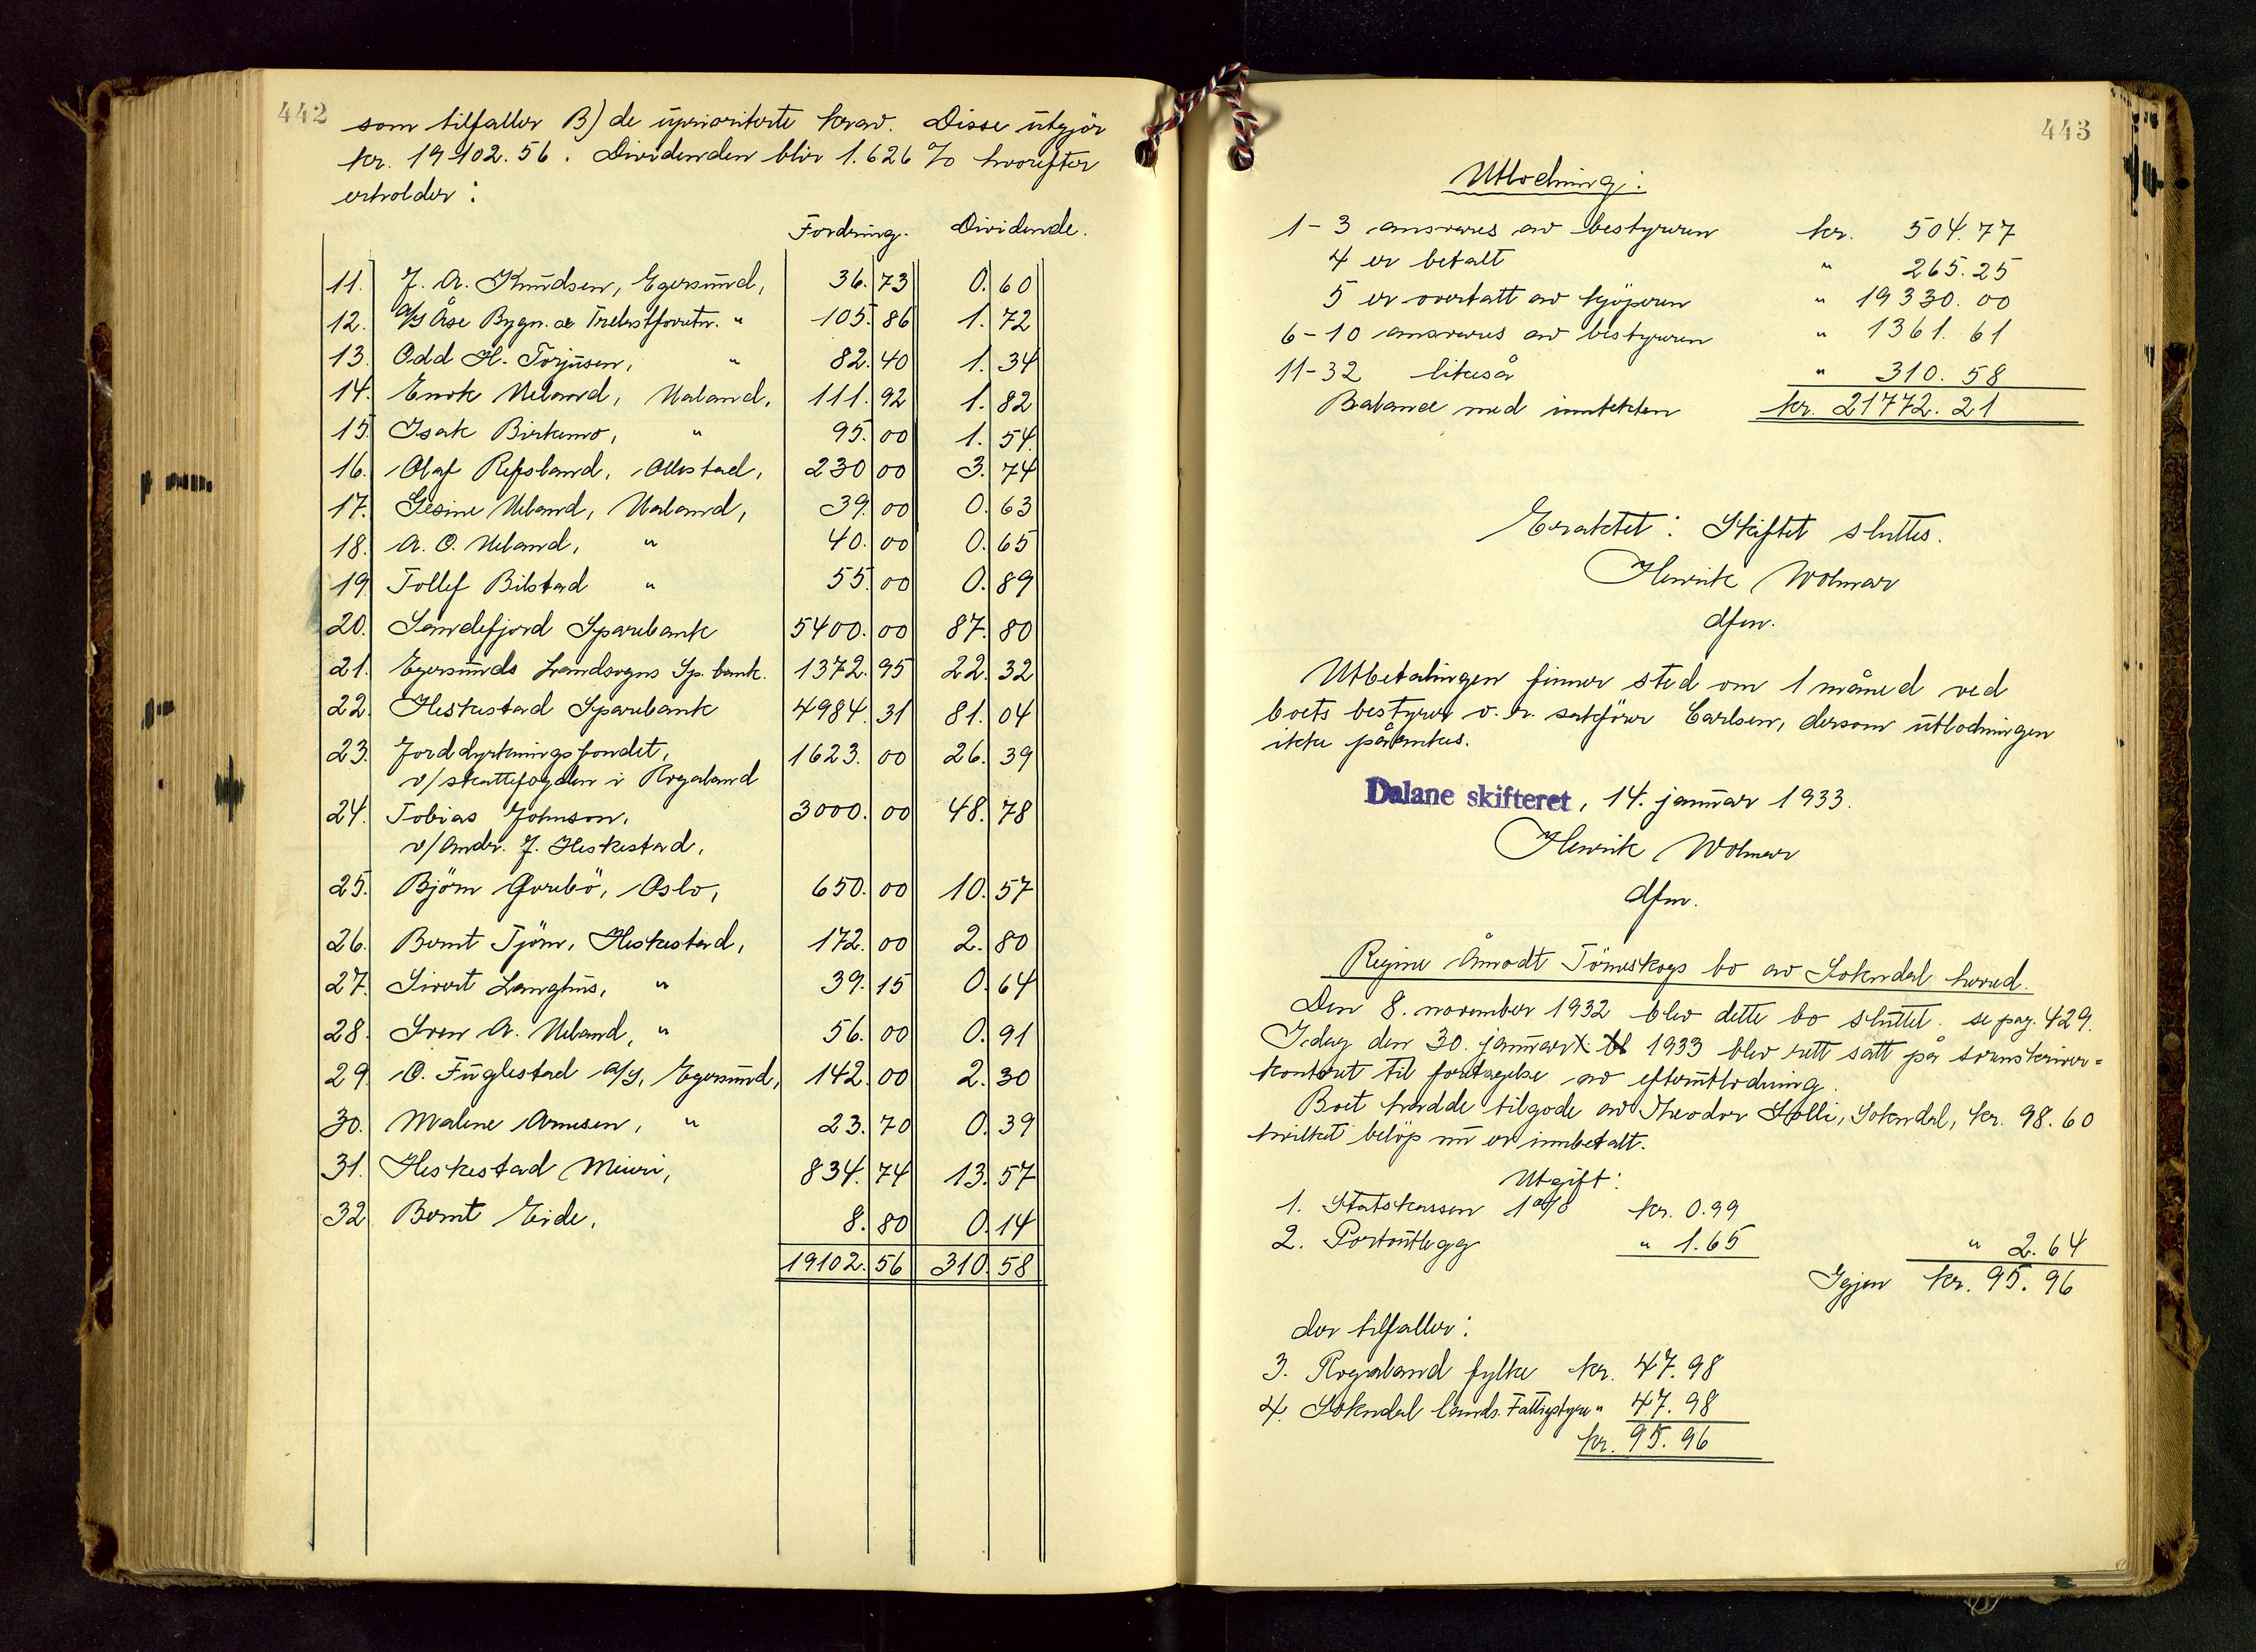 442
som tilfaller B) de uprioriterte krav. Disse utgjör
kr. 19102.56. Dividenden blir 1.626 % hvorefter
erholder:
Fordring. Dividende.
11. J. A. Knudsen, Egersund, 36.73 0.60
12. A/S Åse Bygn. & Trelastforretn. " 105.86 1.72
13. Odd H. Torjusen, " 82.40 1.34
14. Enok Ueland, Ualand, 111.92 1.82
15. Isak Birkemo, " 95.00 1.54
16. Olaf Refsland, Ollestad, 230 00 3.74
17. Gesine Ueland, Ualand, 39.00 0.63
18. A. O. Ueland, " 40.00 0.65
19. Tollef Bilstad " 55.00 0.89
20. Sandefjord Sparebank 5400.00 87.80
21. Egersunds Landsogns Sp. bank. 1372.95 22.32
22. Heskestad Sparebank 4984.31 81.04
23. Jorddyrkningsfondet, 1623.00 26.39
v/skattefogden i Rogaland
24. Tobias Johnson, 3000.00 48.78
v/Andr. J. Heskestad,
25. Björn Gorebö, Oslo, 650.00 10.57
26. Bernt Tjörn, Heskestad, 172.00 2.80
27. Sivert Langhus, " 39.15 0.64
28. Sven A. Ueland, " 56.00 0.91
29. O. Fuglestad A/S, Egersund, 142.00 2.30
30. Malene Arnesen, " 23.70 0.39
31. Heskestad Meieri, 834.74 13.57
32. Bernt Eide, 8.80 0.14
19102.56 310.58
443
Utlodning:
1-3 ansvares av bestyreren kr. 504.77
4 er betalt " 265.25
5 er overtatt av kjöperen " 19330.00
6-10 ansvares av bestyreren " 1361.61
11-32 likeså " 310.58
Balance med inntekten kr. 21772.21
Eraktet: Skiftet sluttes.
Henrik Wolmar
dfm.
Utbetalingen finner sted om 1 måned ved
boets bestyrer o.r. sakförer Carlsen, dersom utlodningen
ikke påankes.
Dalane skifteret, 14. januar 1933.
Henrik Wolmar
dfm.
Regine Ånrodt Törneskogs bo av Sokndal herred.
Den 8. november 1932 blev dette bo sluttet. se pag. 429.
Idag den 30. januar 1933 blev rett satt på sorenskriver=
kontoret til foretagelse av efterutlodning.
Boet hadde tilgode av Theodor Solli, Sokndal, kr. 98.60
hvilket belöp nu er innbetalt.
Utgift:
1. Statskassen 1% kr. 0.99
2. Portoutlegg " 1.65 " 2.64
Igjen kr. 95.96
der tilfaller:
3. Rogaland fylke kr. 47.98
4. Sokndal lands. Fattigstyre " 47.98
kr. 95.96